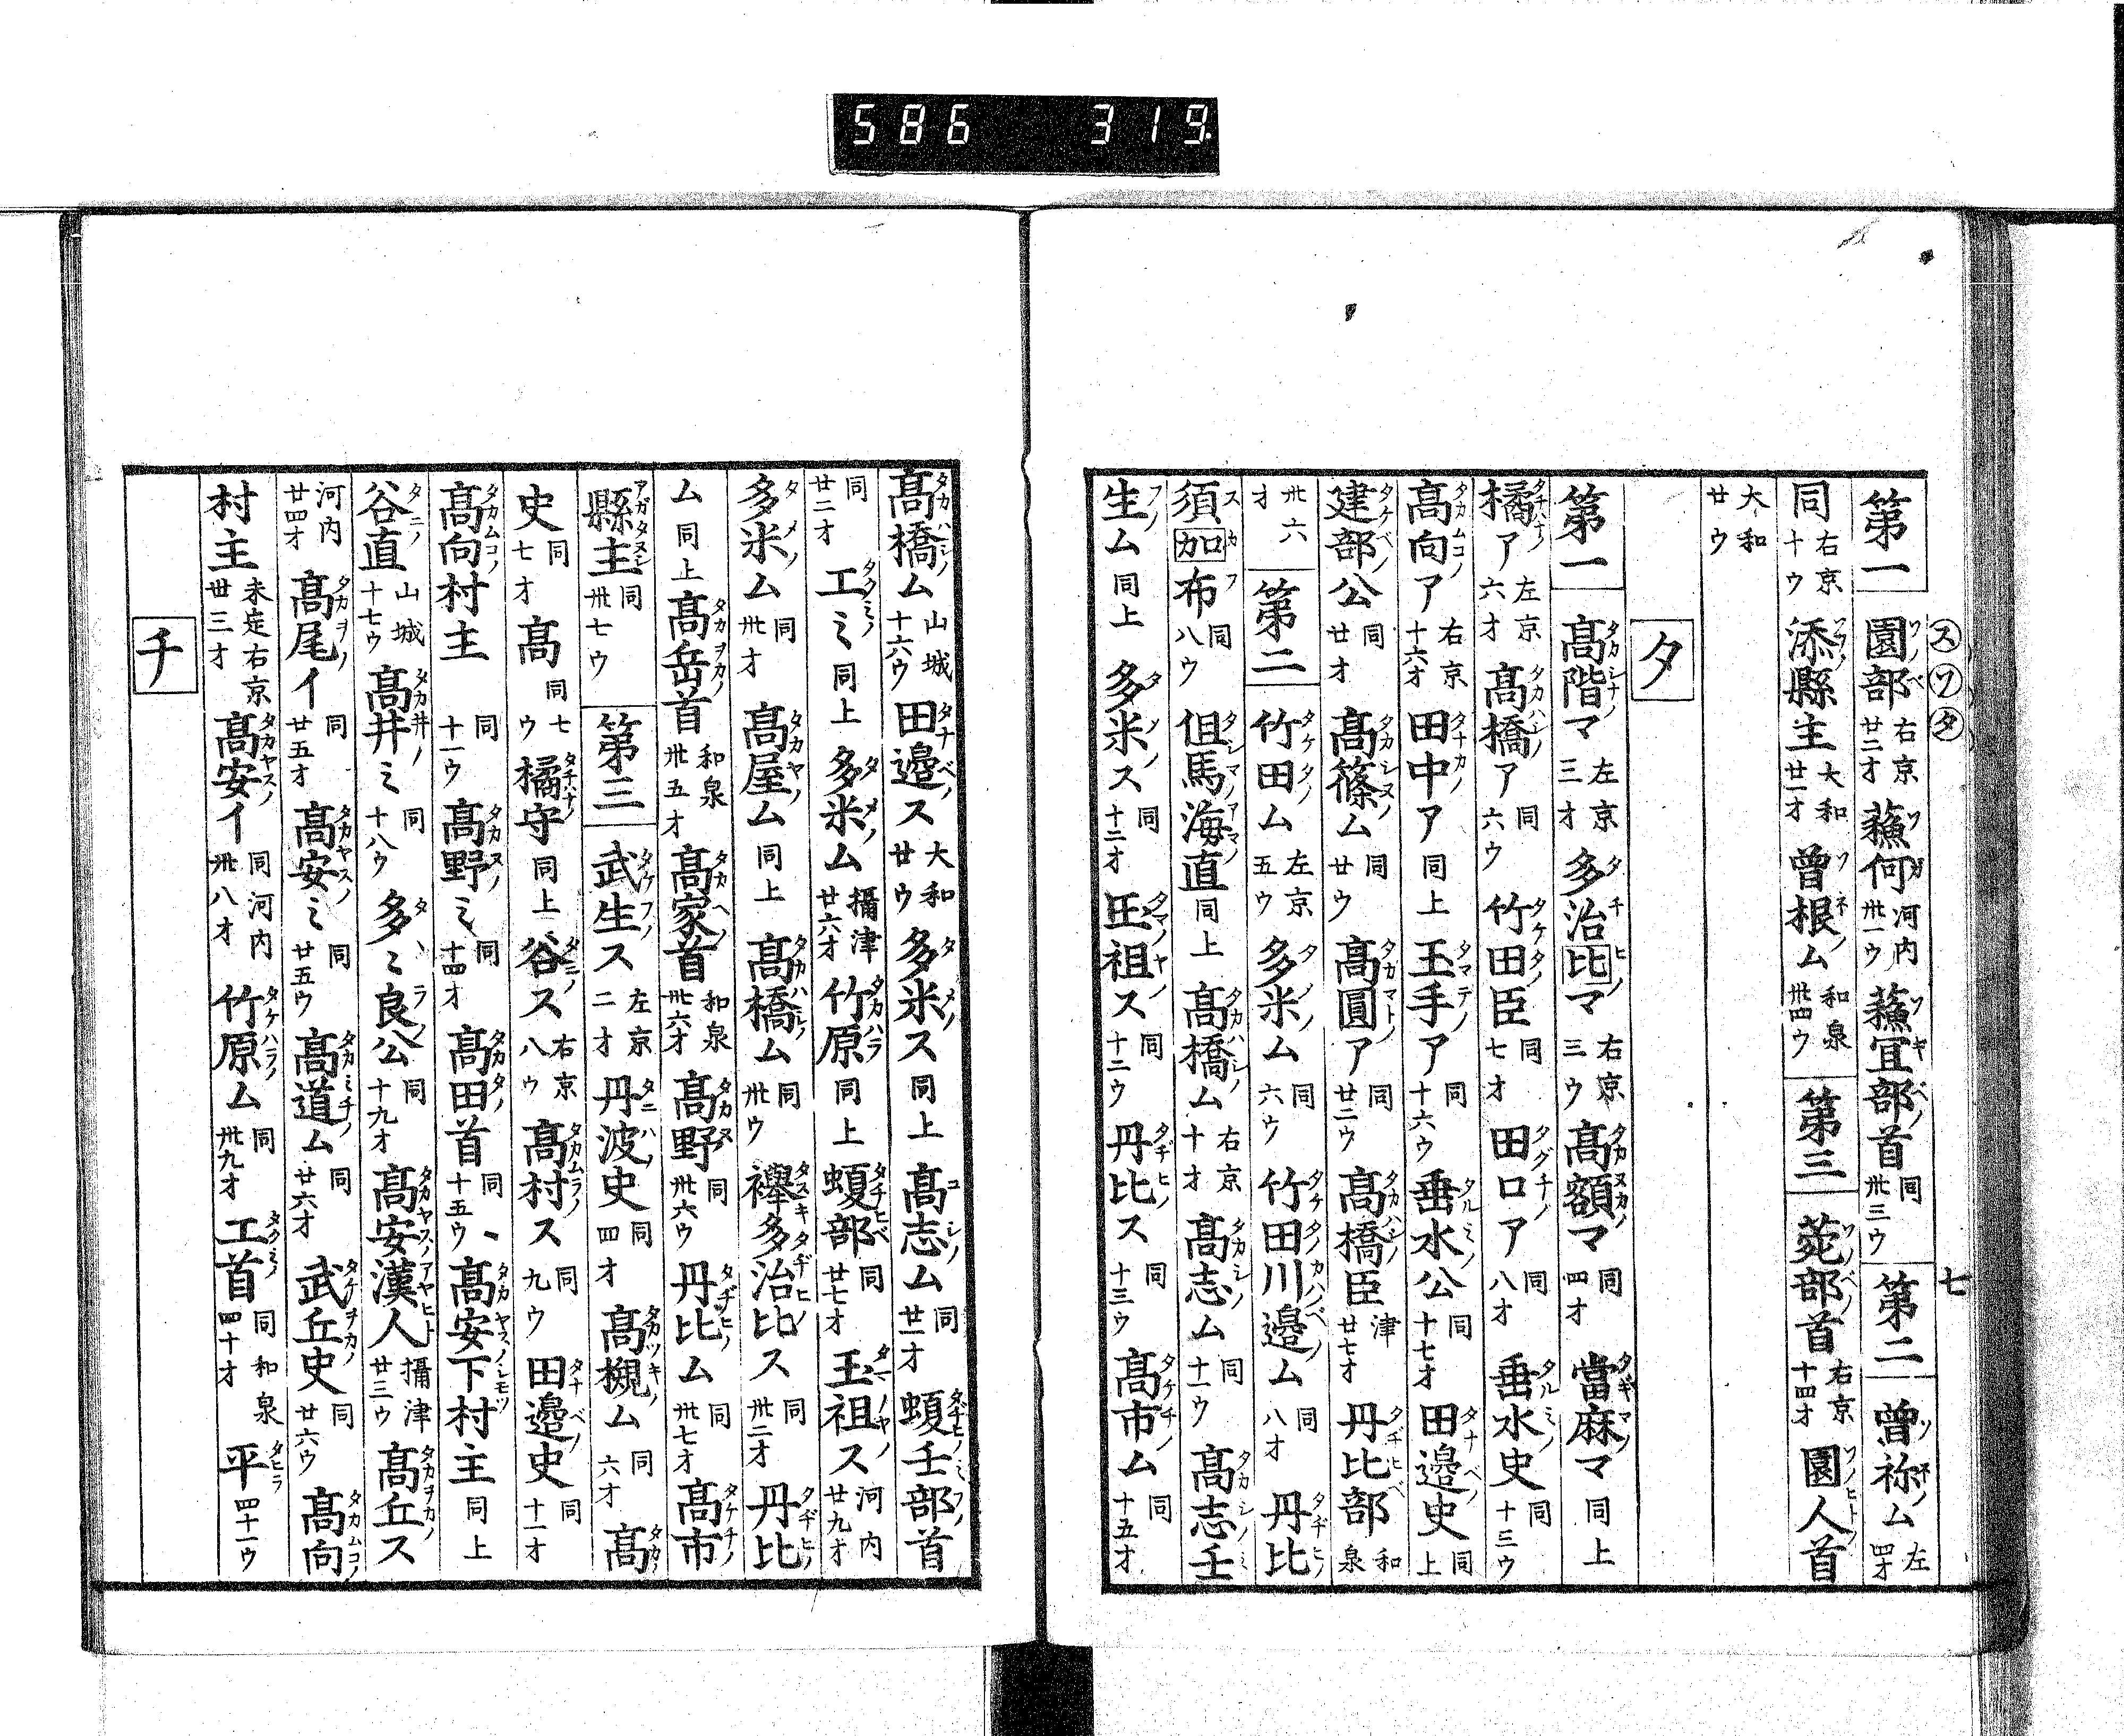 586 319
スソタ 七
第一 園部 右京廿二オ 蘓何 河内卅一ウ 蘓宜部首 同卅三ウ 第二 曽祢ム 左四オ
同 右京十ウ 添縣主 大和廿一オ 曽根ム 和泉卌四ウ 第三 薗部首 右京十四オ 園人首
大和廿ウ
タ
第一 髙階マ 左京三オ 多治比マ 右京三ウ 髙額マ 同四オ 當麻マ 同上
橘ア 左京六オ 髙橋ア 同六ウ 竹田臣 同七オ 田口ア 同八オ 垂水史 同十三ウ
髙向ア 右京十六オ 田中ア 同上 玉手ア 同十六ウ 垂水公 同十七オ 田邉史 同上
建部公 同廿オ 髙篠ム 同廿ウ 髙圓ア 同廿二ウ 髙橋臣 津廿七オ 丹比部 和泉
卅六オ 第二 竹田ム 左京五ウ 多米ム 同六ウ 竹田川邉ム 同八オ 丹比
須加布 同八ウ 但馬海直 同上 髙橋ム 右京十オ 髙志ム 同十一ウ 髙志壬
生ム 同上 多米ス 同十二オ 玉祖ス 同十二ウ 丹比ス 同十三ウ 髙市ム 同十五オ
髙橋ム 山城十六ウ 田邉ス 大和廿ウ 多米ス 同上 髙志ム 同廿一オ 蝮壬部首
同廿二オ 工ミ 同上 多米ム 攝津廿六オ 竹原 同上 蝮部 同廿七オ 玉祖ス 河内廿九オ
多米ム 同卅オ 髙屋ム 同上 髙橋ム 同卅ウ 襷多治比ス 同卅二オ 丹比
ム 同上 髙岳首 和泉卅五オ 髙家首 和泉卅六オ 髙野 同卅六ウ 丹比ム 同卅七オ 髙市
縣主 同卅七ウ 第三 武生ス 左京二オ 丹波史 同四オ 髙槻ム 同六オ 髙
史 同七オ 髙 同七ウ 橘守 同上 谷ス 右京八ウ 髙村ス 同九ウ 田邉史 同十一オ
髙向村主 同十一ウ 髙野ミ 同十四オ 髙田首 同十五ウ 髙安下村主 同上
谷直 山城十七ウ 髙井ミ 同十八ウ 多〻良公 同十九オ 髙安漢人 攝津廿三ウ 髙丘ス
河内廿四オ 髙尾イ 同廿五オ 髙安ミ 同廿五ウ 髙道ム 同廿六オ 武丘史 同廿六ウ 髙向
村主 未㝎右京卅三オ 髙安イ 同河内卅八オ 竹原ム 同卅九オ 工首 同和泉四十オ 平 四十一ウ
チ